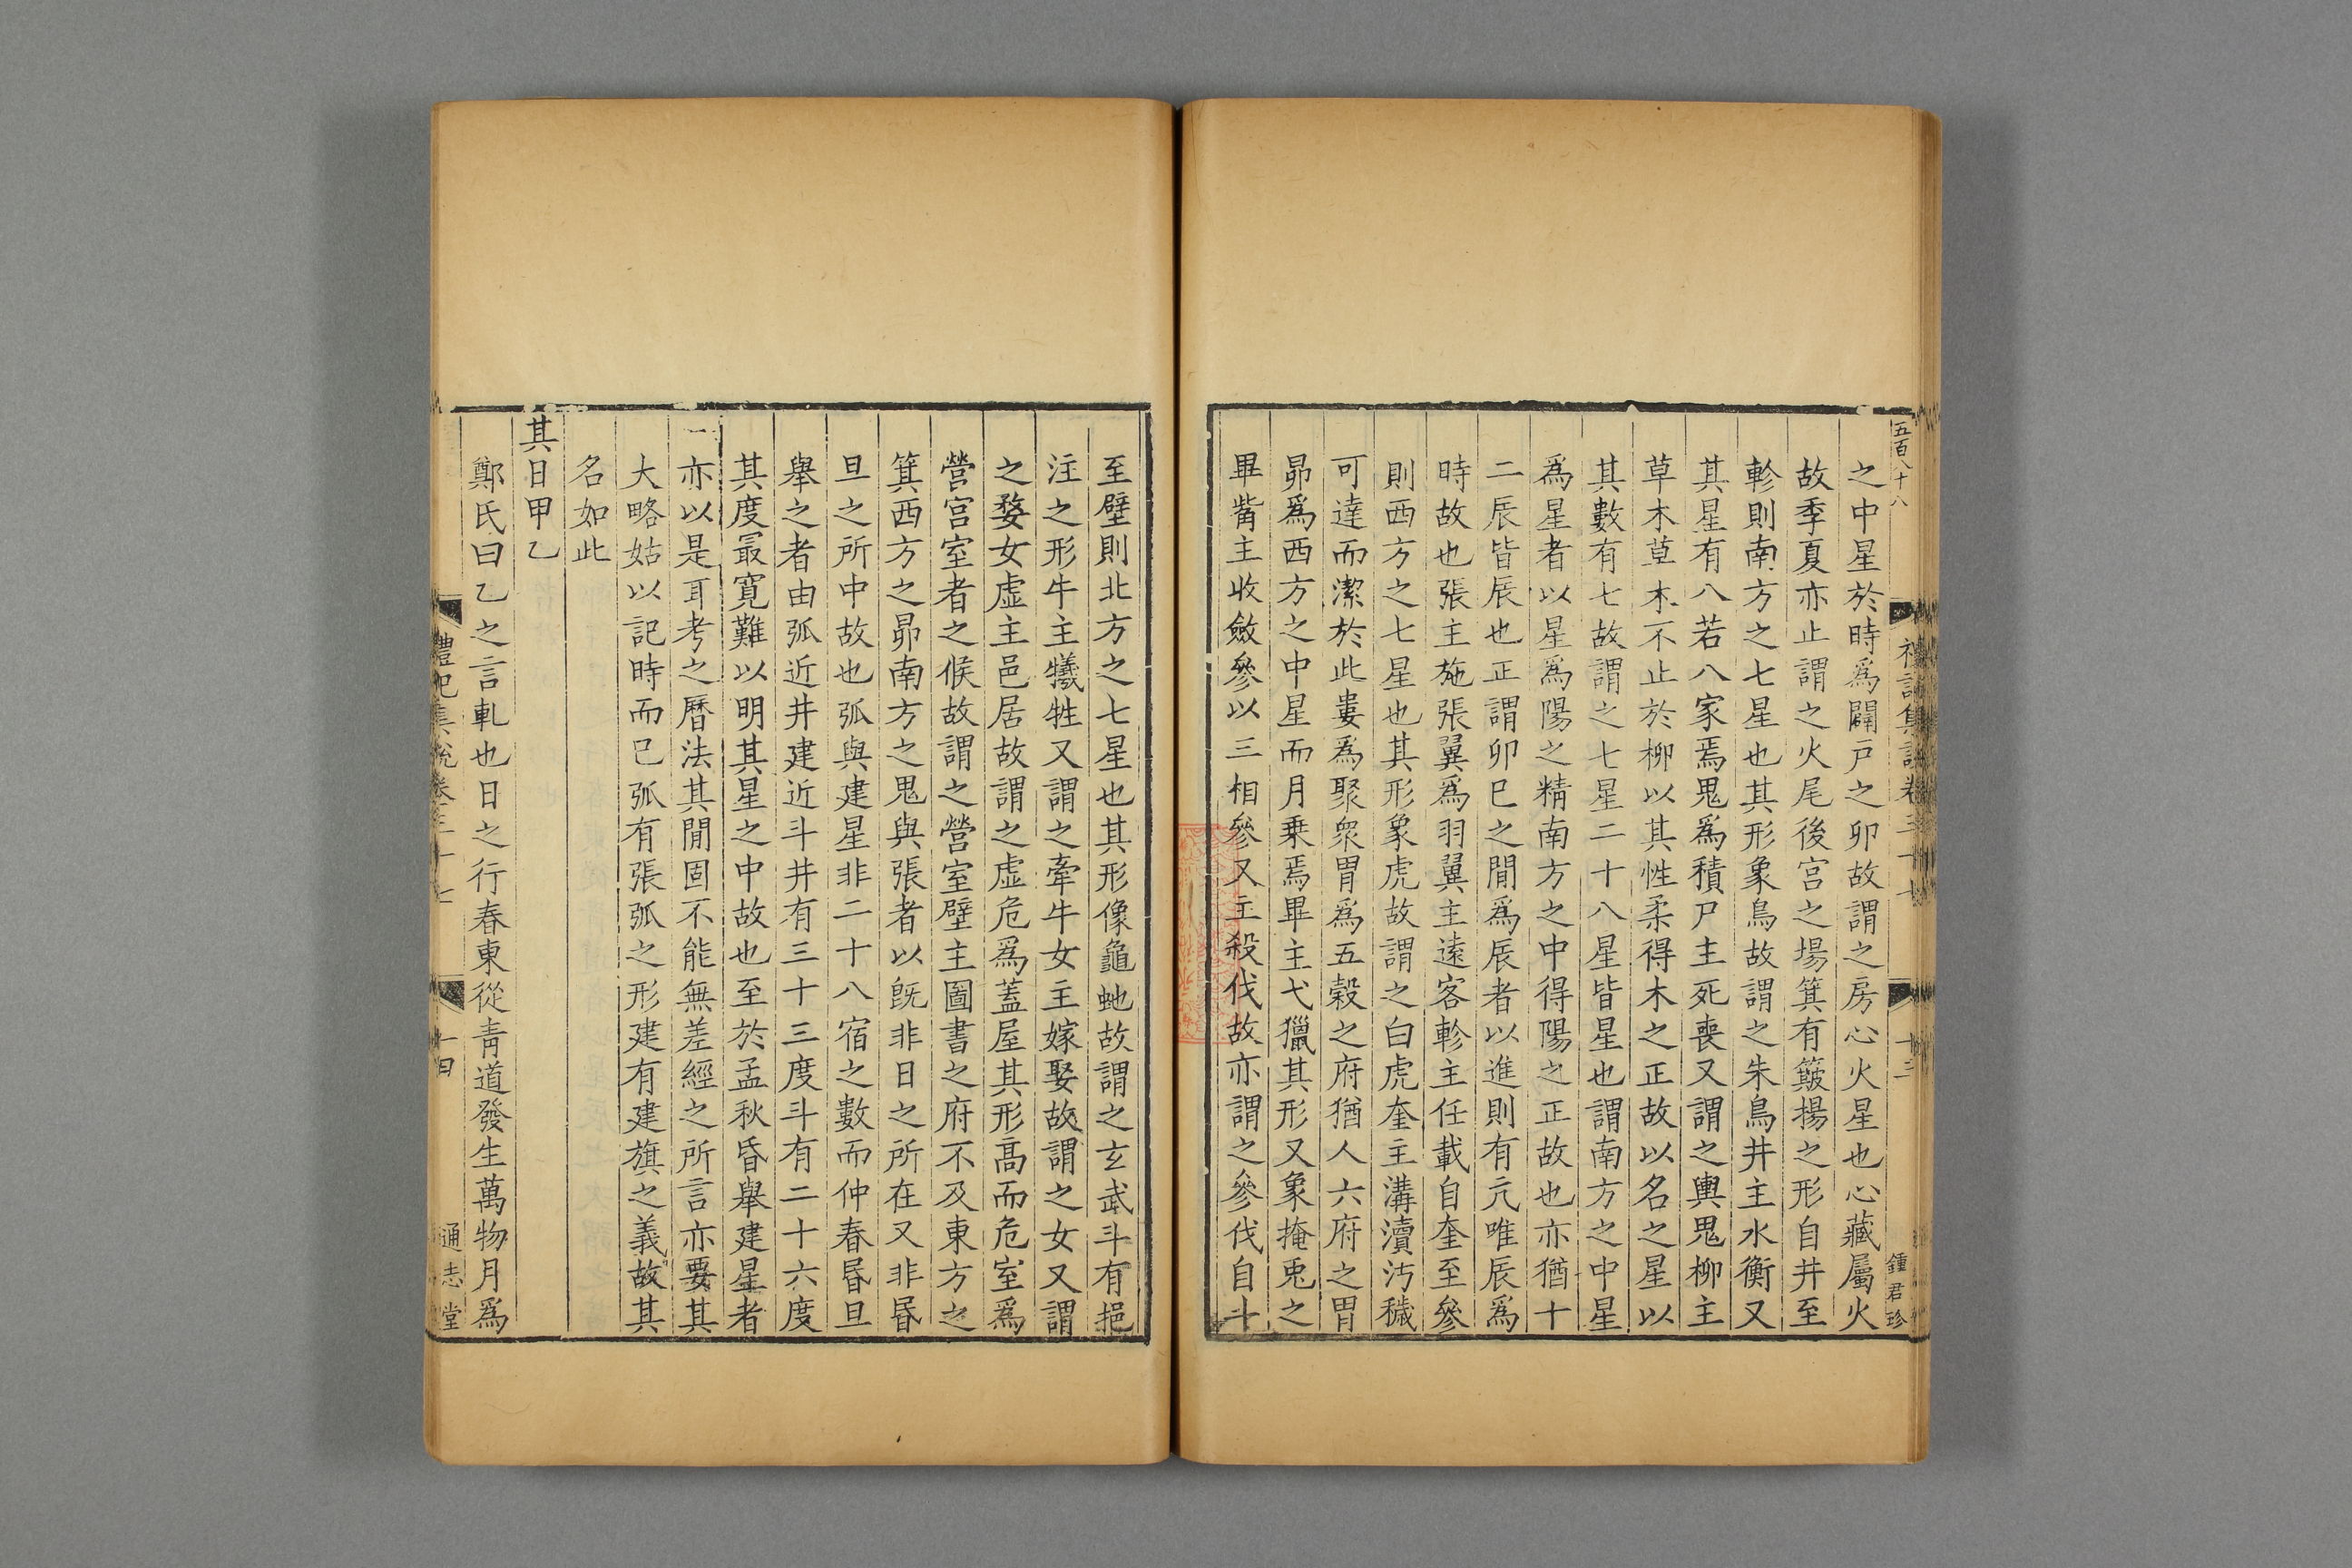 五百八十八
禮記集說卷三十七
十三
鍾君珍
之中星於時爲闢戸之卯故謂之房心火星也心藏屬火
故季夏亦止謂之火尾後宫之場箕有簸揚之形自井至
軫則南方之七星也其形象鳥故謂之朱鳥井主水衡又
其星有八若八家焉鬼爲積尸主死喪又謂之輿鬼柳主
草木草木不止於柳以其性柔得木之正故以名之星以
其數有七故謂之七星二十八星皆星也謂南方之中星
爲星者以星爲陽之精南方之中得陽之正故也亦猶十
二辰皆辰也正謂卯巳之間爲辰者以進則有亢唯辰爲
時故也張主施張翼爲羽翼主逺客軫主任載自奎至參
則西方之七星也其形象虎故謂之白虎奎主溝瀆汚穢
可達而潔於此婁爲聚衆胃爲五榖之府猶人六府之胃
昴爲西方之中星而月乗焉畢主弋獵其形又象掩兎之
畢觜主收斂參以三相參又主殺伐故亦謂之參伐自斗
至壁則北方之七星也其形像龜虵故謂之玄武斗有挹
注之形牛主犧牲又謂之牽牛女主嫁娶故謂之女又謂
之婺女虚主邑居故謂之虚危爲蓋屋其形髙而危室爲
營宫室者之候故謂之營室壁主圖書之府不及東方之
箕西方之昴南方之鬼與張者以旣非日之所在又非昬
旦之所中故也弧與建星非二十八宿之數而仲春昬旦
舉之者由弧近井建近斗井有三十三度斗有二十六度
其度最寛難以明其星之中故也至於孟秋昏舉建星者
亦以是耳考之曆法其間固不能無差經之所言亦要其
大略姑以記時而已弧有張弧之形建有建旗之義故其
名如此
其日甲乙
鄭氏曰乙之言軋也日之行春東從青道發生萬物月爲
禮記集說卷三十七
十四
通志堂